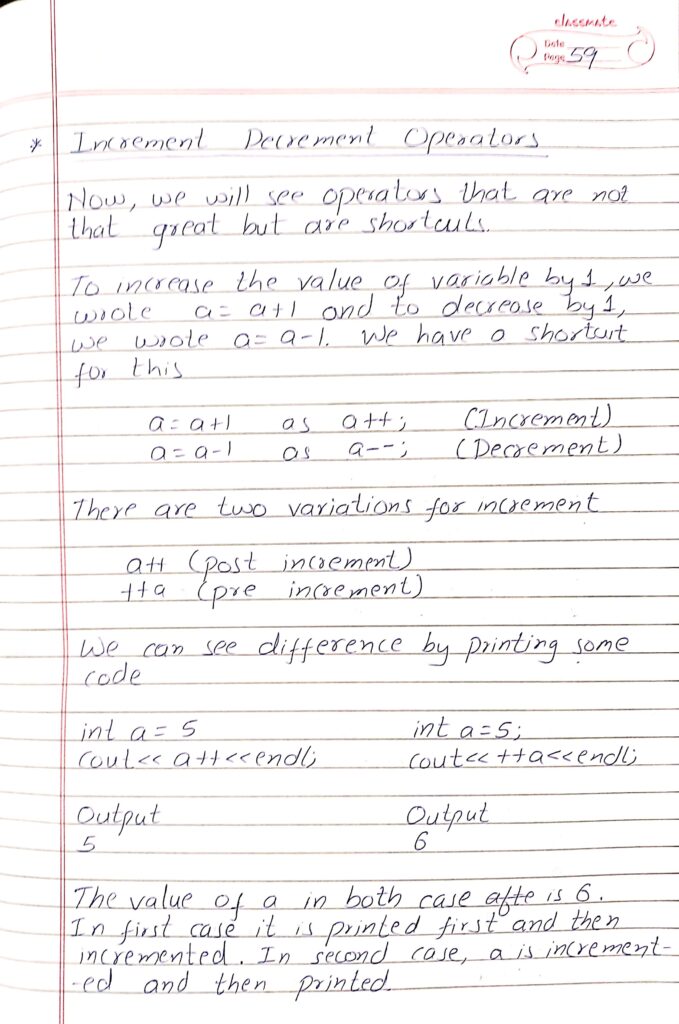 classmate
Date
Page 59
* Increment Decrement Operators
Now, we will see operators that are not
that great but are shortcuts.
To increase the value of variable by 1, we
wrote a = a+1 and to decrease by 1,
we wrote a = a-1. We have a shortcut
for this
a = a+1 as a++; (Increment)
a = a-1 as a--; (Decrement)
There are two variations for increment
a++ (post increment)
++a (pre increment)
We can see difference by printing some
code
int a = 5 int a=5;
cout<< a++<<endl; cout<< ++a<<endl;
Output Output
5 6
The value of a in both case afte is 6.
In first case it is printed first and then
incremented. In second case, a is increment-
-ed and then printed.